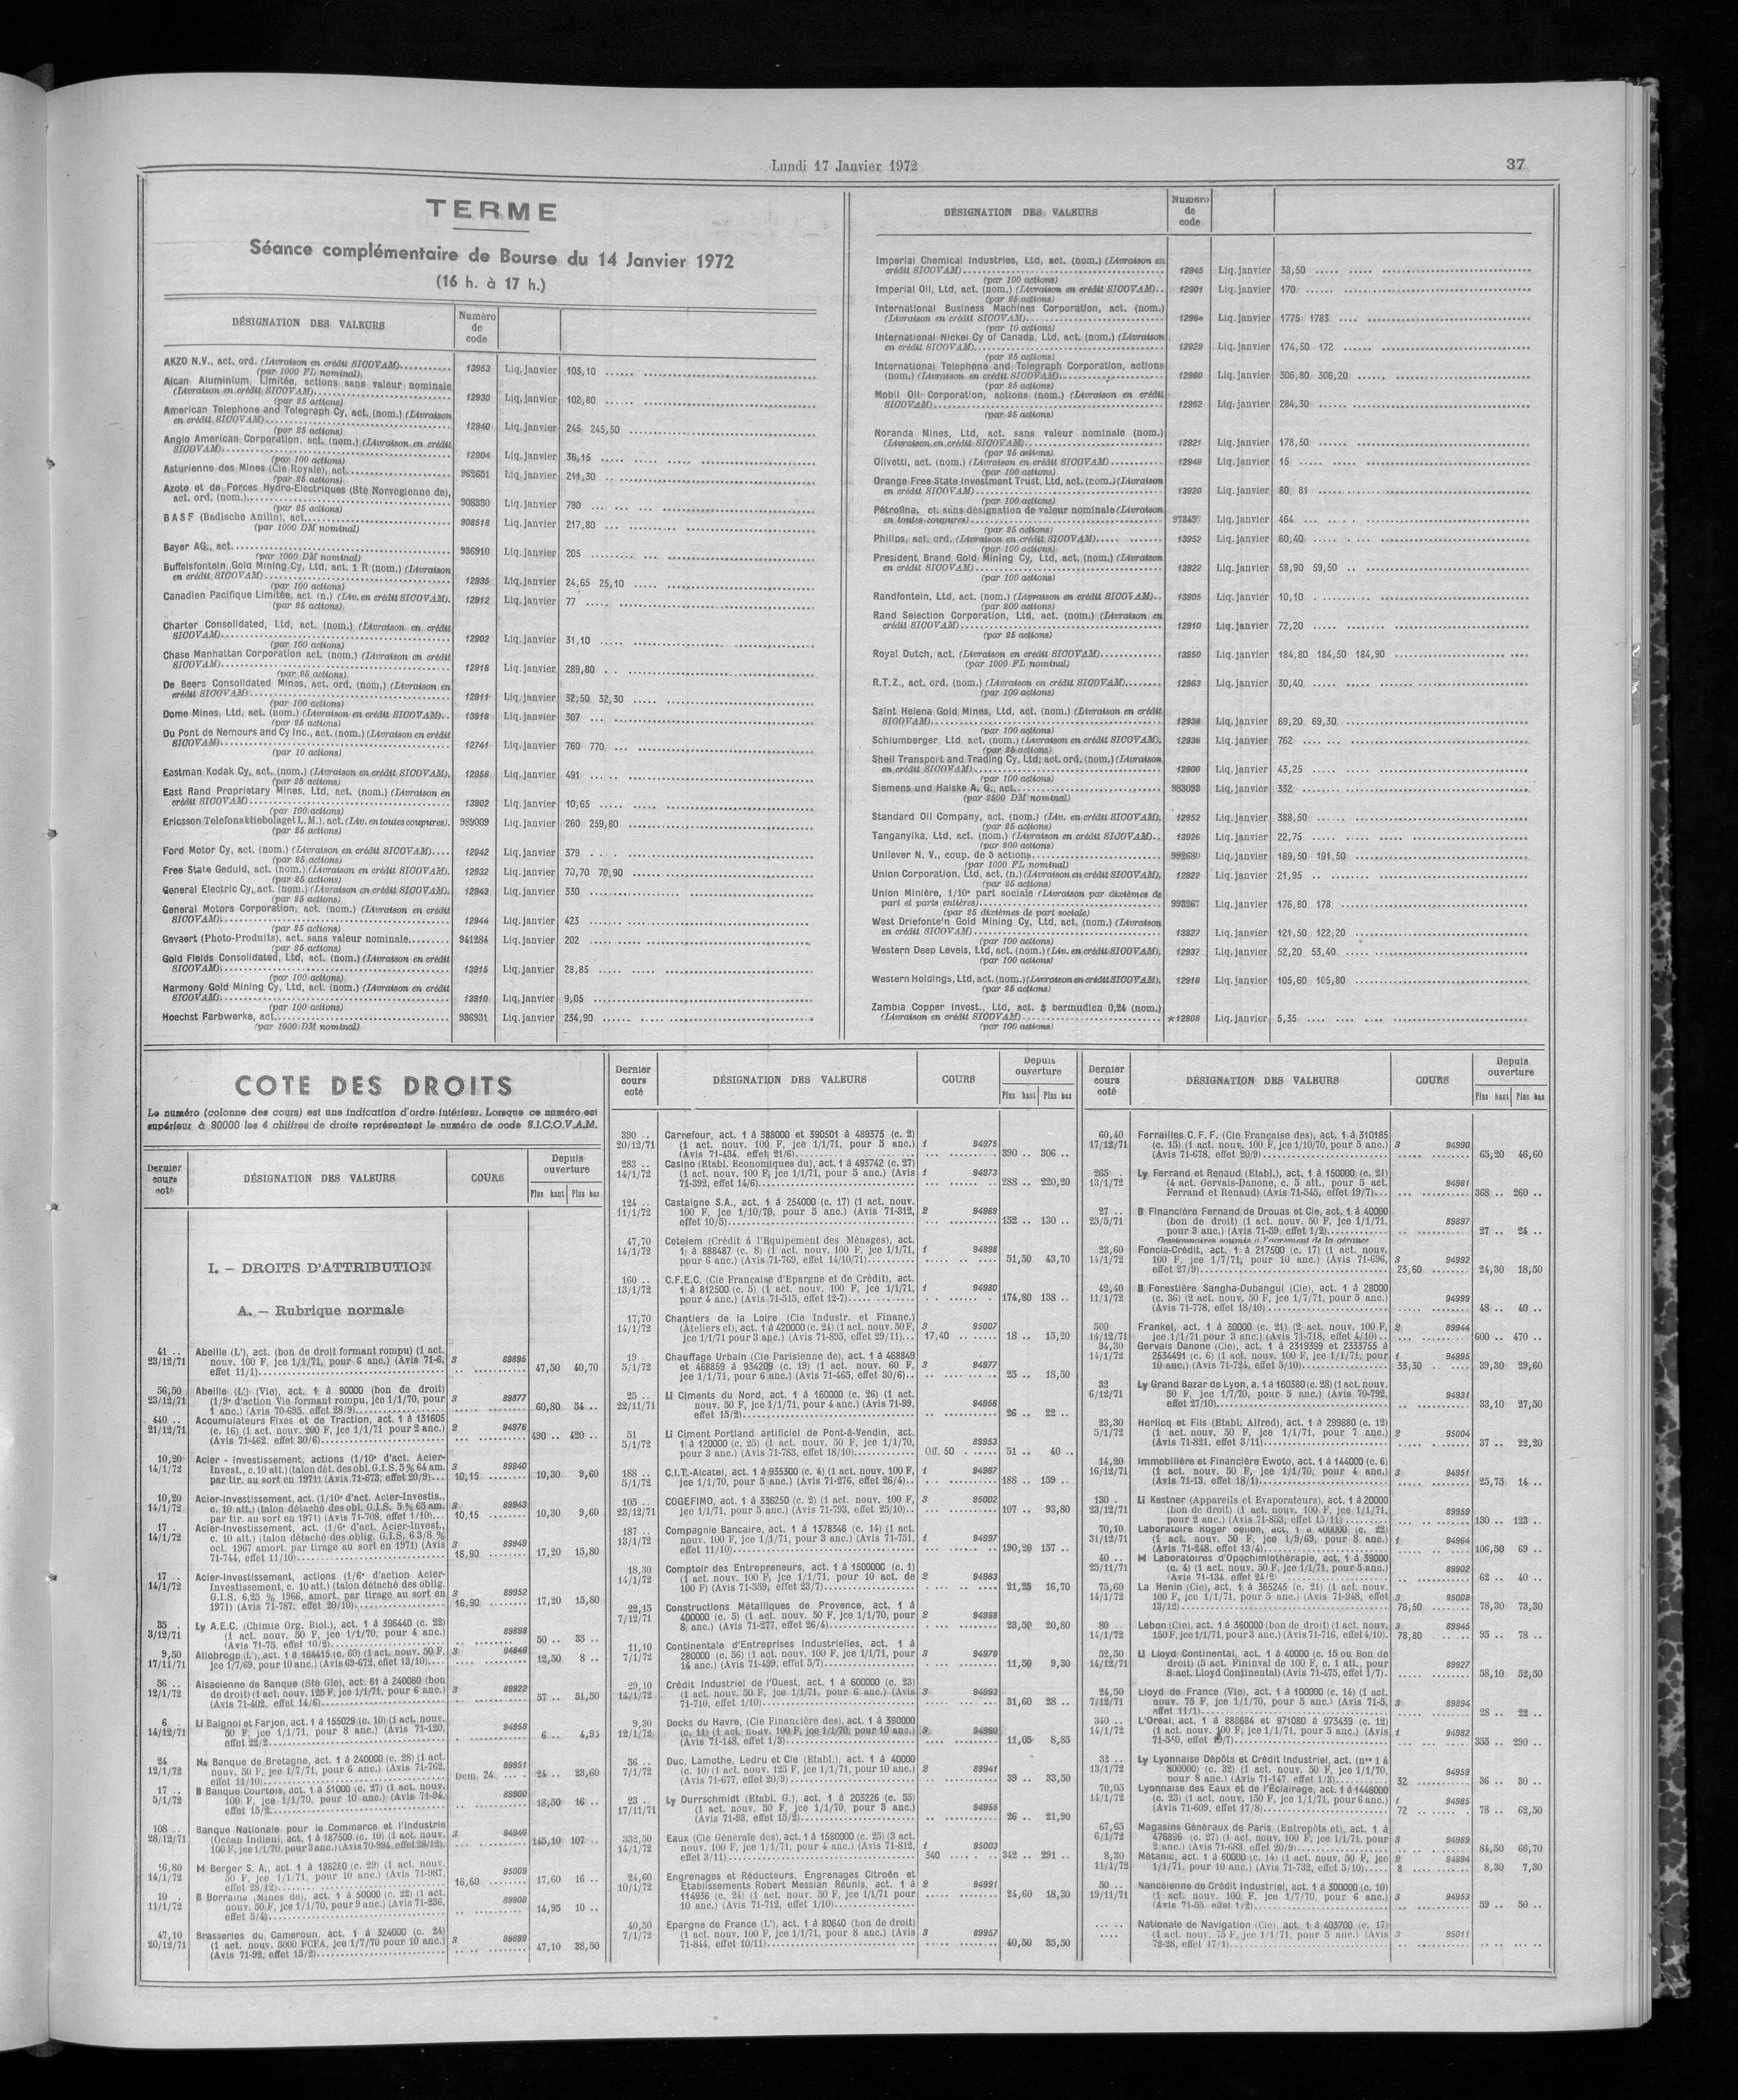 Lundi 17 Janvier 1972
37
TERME
Séance complémentaire de Bourse du 14 Janvier 1972
(16 h. à 17 h.)
DÉSIGNATION DES VALEURS
Numéro de code
AKZO N.V., act. ord. (Livraison en crédit SICOVAM) 13953 Liq. janvier 103,10
(par 1000 FL nominal)
Alcan Aluminium Limitée, actions sans valeur nominale
(Livraison en crédit SICOVAM) 12930 Liq. janvier 102,80
(par 25 actions)
American Telephone and Telegraph Cy, act. (nom.) (Livraison
en crédit SICOVAM) 12940 Liq. janvier 245 245,50
(par 25 actions)
Anglo American Corporation, act. (nom.) (Livraison en crédit
SICOVAM) 12904 Liq. janvier 36,15
(par 100 actions)
Asturienne des Mines (Cie Royale), act. 962651 Liq. janvier 211,30
(par 25 actions)
Azote et de Forces Hydro-Electriques (Sté Norvégienne de),
act. ord. (nom.) 908330 Liq. janvier 790
(par 25 actions)
BASF (Badische Anilin), act. 908518 Liq. janvier 217,80
(par 1000 DM nominal)
Bayer AG., act. 936910 Liq. janvier 205
(par 1000 DM nominal)
Buffelsfontein Gold Mining Cy, Ltd, act. 1 R (nom.) (Livraison
en crédit SICOVAM) 12935 Liq. janvier 24,65 25,10
(par 100 actions)
Canadien Pacifique Limitée, act. (n.) (Liv. en crédit SICOVAM). 12912 Liq. janvier 77
(par 25 actions)
Charter Consolidated, Ltd, act. (nom.) (Livraison en crédit
SICOVAM) 12902 Liq. janvier 31,10
(par 100 actions)
Chase Manhattan Corporation act. (nom.) (Livraison en crédit
SICOVAM) 12916 Liq. janvier 289,80
(par 25 actions)
De Beers Consolidated Mines, act. ord. (nom.) (Livraison en
crédit SICOVAM) 12911 Liq. janvier 32,50 32,30
(par 100 actions)
Dome Mines, Ltd, act. (nom.) (Livraison en crédit SICOVAM) 13918 Liq. janvier 307
(par 25 actions)
Du Pont de Nemours and Cy Inc., act. (nom.) (Livraison en crédit
SICOVAM) 12741 Liq. janvier 760 770
(par 10 actions)
Eastman Kodak Cy, act. (nom.) (Livraison en crédit SICOVAM). 12958 Liq. janvier 491
(par 25 actions)
East Rand Proprietary Mines, Ltd, act. (nom.) (Livraison en
crédit SICOVAM) 13902 Liq. janvier 10,65
(par 100 actions)
Ericsson Telefonaktiebolaget L.M.), act. (Liv. en toutes coupures). 989009 Liq. janvier 260 259,80
(par 25 actions)
Ford Motor Cy, act. (nom.) (Livraison en crédit SICOVAM) 12942 Liq. janvier 379
(par 25 actions)
Free State Geduld, act. (nom.) (Livraison en crédit SICOVAM). 12932 Liq. janvier 70,70 70,90
(par 25 actions)
General Electric Cy, act. (nom.) (Livraison en crédit SICOVAM). 12943 Liq. janvier 330
(par 25 actions)
General Motors Corporation, act. (nom.) (Livraison en crédit
SICOVAM) 12944 Liq. janvier 423
(par 25 actions)
Gevaert (Photo-Produits), act. sans valeur nominale 941284 Liq. janvier 202
(par 25 actions)
Gold Fields Consolidated, Ltd, act. (nom.) (Livraison en crédit
SICOVAM) 13915 Liq. janvier 28,85
(par 100 actions)
Harmony Gold Mining Cy, Ltd, act. (nom.) (Livraison en crédit
SICOVAM) 13910 Liq. janvier 9,05
(par 100 actions)
Hoechst Farbwerke, act. 936931 Liq. janvier 234,90
(par 1000 DM nominal)
DÉSIGNATION DES VALEURS
Numéro de code
Imperial Chemical Industries, Ltd, act. (nom.) (Livraison en
crédit SICOVAM) 12945 Liq. janvier 38,50
(par 100 actions)
Imperial Oil, Ltd, act. (nom.) (Livraison en crédit SICOVAM) 12901 Liq. janvier 170
(par 25 actions)
International Business Machines Corporation, act. (nom.)
(Livraison en crédit SICOVAM) 12964 Liq. janvier 1775 1783
(par 10 actions)
International Nickel Cy of Canada, Ltd, act. (nom.) (Livraison
en crédit SICOVAM) 12929 Liq. janvier 174,50 172
(par 25 actions)
International Telephone and Telegraph Corporation, actions
(nom.) (Livraison en crédit SICOVAM) 12960 Liq. janvier 306,80 306,20
(par 25 actions)
Mobil Oil Corporation, actions (nom.) (Livraison en crédit
SICOVAM) 12962 Liq. janvier 284,30
(par 25 actions)
Noranda Mines, Ltd, act. sans valeur nominale (nom.)
(Livraison en crédit SICOVAM) 12921 Liq. janvier 178,50
(par 25 actions)
Olivetti, act. (nom.) (Livraison en crédit SICOVAM) 12949 Liq. janvier 15
(par 100 actions)
Orange Free State Investment Trust, Ltd, act. (nom.) (Livraison
en crédit SICOVAM) 13920 Liq. janvier 80 81
(par 100 actions)
Pétrofina, ct. sans désignation de valeur nominale (Livraison
en toutes coupures) Liq. janvier 464
(par 25 actions)
Philips, act. ord. (Livraison en crédit SICOVAM) 13952 Liq. janvier 60,40
(par 100 actions)
President Brand Gold Mining Cy, Ltd, act. (nom.) (Livraison
en crédit SICOVAM) 13922 Liq. janvier 58,90 59,50
(par 100 actions)
Randfontein, Ltd, act. (nom.) (Livraison en crédit SICOVAM) 13905 Liq. janvier 10,10
(par 200 actions)
Rand Selection Corporation, Ltd, act. (nom.) (Livraison en
crédit SICOVAM) 12910 Liq. janvier 72,20
(par 25 actions)
Royal Dutch, act. (Livraison en crédit SICOVAM) 13950 Liq. janvier 184,80 184,50 184,90
(par 1000 FL nominal)
R.T.Z., act. ord. (nom.) (Livraison en crédit SICOVAM) 12963 Liq. janvier 30,40
(par 100 actions)
Saint Helena Gold Mines, Ltd, act. (nom.) (Livraison en crédit
SICOVAM) 12938 Liq. janvier 69,20 69,30
(par 100 actions)
Schlumberger, Ltd act. (nom.) (Livraison en crédit SICOVAM). 12936 Liq. janvier 762
(par 25 actions)
Shell Transport and Trading Cy, Ltd; act. ord. (nom.) (Livraison
en crédit SICOVAM) 12900 Liq. janvier 43,25
(par 100 actions)
Siemens und Halske A. G., act. 983093 Liq. janvier 332
(par 2500 DM nominal)
Standard Oil Company, act. (nom.) (Liv. en crédit SICOVAM). 12952 Liq. janvier 388,50
(par 25 actions)
Tanganyika, Ltd, act. (nom.) (Livraison en crédit SICOVAM) 13926 Liq. janvier 22,75
(par 200 actions)
Unilever N. V., coup. de 5 actions 992680 Liq. janvier 189,50 191,50
(par 1000 FL nominal)
Union Corporation, Ltd, act. (n.) (Livraison en crédit SICOVAM). 12922 Liq. janvier 21,95
(par 25 actions)
Union Minière, 1/10e part sociale (Livraison par dixièmes de
part et parts entières) 993267 Liq. janvier 176,80 178
(par 25 dixièmes de part sociale)
West Driefontein Gold Mining Cy, Ltd, act. (nom.) (Livraison
en crédit SICOVAM) 13927 Liq. janvier 121,50 122,20
(par 100 actions)
Western Deep Levels, Ltd, act. (nom.) (Liv. en crédit SICOVAM). 12937 Liq. janvier 52,20 53,40
(par 100 actions)
Western Holdings, Ltd, act. (nom.) (Livraison en crédit SICOVAM). 12918 Liq. janvier 105,60 105,80
(par 25 actions)
Zambia Copper Invest., Ltd, act. $ bermudien 0,24 (nom.)
(Livraison en crédit SICOVAM) ★12908 Liq. janvier 5,35
(par 100 actions)
COTE DES DROITS
Le numéro (colonne des cours) est une indication d'ordre intérieur. Lorsque ce numéro est
supérieur à 90000 les 4 chiffres de droite représentent le numéro de code S.I.C.O.V.A.M.
Dernier cours coté
DÉSIGNATION DES VALEURS
COURS
Depuis ouverture
Plus haut Plus bas
I. — DROITS D'ATTRIBUTION
A. — Rubrique normale
41 .. Abeille (L'), act. (bon de droit formant rompu) (1 act.
23/12/71 nouv. 100 F, jce 1/1/71, pour 6 anc.) (Avis 71-6, 3 89895
effet 11/1) 47,50 40,70
56,50 Abeille (L') (Vie), act. 1 à 90000 (bon de droit)
23/12/71 (1/9e d'action Vie formant rompu, jce 1/1/70, pour 3 89877
1 anc.) (Avis 70-695, effet 28/9) 60,80 54 ..
440 .. Accumulateurs Fixes et de Traction, act. 1 à 131605
21/12/71 (c. 16) (1 act. nouv. 200 F, jce 1/1/71 pour 2 anc.) 2 94976
(Avis 71-462, effet 30/6) 490 .. 420 ..
10,20 Acier - Investissement, actions (1/10e d'act. Acier-
14/1/72 Invest., c. 10 att.) (talon dét. des obl. G.I.S. 5 % 64 am. 3 89940
par tir. au sort en 1971) (Avis 71-673, effet 20/9) 10,15 10,30 9,60
10,20 Acier-Investissement, act. (1/10e d'act. Acier-Investis.,
14/1/72 c. 10 att.) (talon détaché des obl. G.I.S. 5 % 65 am. 3 89943
par tir. au sort en 1971) (Avis 71-708, effet 1/10) 10,15 10,30 9,60
17 . Acier-Investissement, act. (1/6e d'act. Acier-Invest.,
14/1/72 c. 10 att.) (talon détaché des oblig. G.I.S. 6,3/8 %
oct. 1967 amort. par tirage au sort en 1971) (Avis 3 89949
71-744, effet 11/10) 16,90 17,20 15,80
17 .. Acier-Investissement, actions (1/6e d'action Acier-
14/1/72 Investissement, c. 10 att.) (talon détaché des oblig.
G.I.S. 6,25 % 1966, amort. par tirage au sort en 3 89952
1971) (Avis 71-787, effet 20/10) 16,90 17,20 15,80
35 . Ly A.E.C. (Chimie Org. Biol.), act. 1 à 396440 (c. 22)
3/12/71 (1 act. nouv. 50 F, jce 1/1/70; pour 4 anc.) 89898
(Avis 71-75, effet 10/2) 50 .. 35 ..
9,50 Allobroge (L'), act. 1 à 184415 (c. 60) (1 act. nouv. 50 F, 3 94846
17/11/71 jce 1/7/69, pour 10 anc.) (Avis 69-672, effet 13/10) 12,50 8 ..
56 .. Alsacienne de Banque (Sté Gle), act. 61 à 240060 (bon
12/1/72 de droit) (1 act. nouv. 125 F, jce 1/1/71, pour 6 anc.) 3 89922
(Avis 71-402, effet 14/6) 57 .. 51,50
6 . Li Baignol et Farjon, act. 1 à 155029 (c. 10) (1 act. nouv.
14/12/71 50 F, jce 1/1/71, pour 8 anc.) (Avis 71-120, 94958
effet 22/2 6 .. 4,95
24 . Na Banque de Bretagne, act. 1 à 240000 (c. 28) (1 act.
12/1/72 nouv. 50 F, jce 1/7/71, pour 6 anc.) (Avis 71-762, 89951
effet 11/10) Dem. 24 24 .. 23,60
17 .. B Banque Courtois, act. 1 à 51000 (c. 27) (1 act. nouv.
5/1/72 100 F, jce 1/1/70, pour 10 anc.) (Avis 71-94, 89900
effet 15/2 18,50 16 ..
108 .. Banque Nationale pour le Commerce et l'Industrie
28/12/71 (Océan Indien), act. 1 à 187500 (c. 10) (1 act. nouv. 3 94946
100 F, jce 1/1/70, pour 3 anc.) (Avis 70-994, effet 28/12). 145,10 107 ..
16,80 M Berger S. A., act. 1 à 188280 (c. 29) (1 act. nouv.
14/1/72 50 F, jce 1/1/71, pour 10 anc.) (Avis 71-987, 95009
effet 28/12) 16,60 17,60 16 ..
10 . B Borraine (Mines de), act. 1 à 50000 (c. 22) (1 act.
11/1/72 nouv. 50 F, jce 1/1/70, pour 9 anc.) (Avis 71-236, 89908
effet 5/4) 14,95 10 ..
47,10 Brasseries du Cameroun, act. 1 à 324000 (c. 24)
20/12/71 (1 act. nouv. 5000 FCFA, jce 1/7/70 pour 10 anc.) 3 89899
(Avis 71-92, effet 15/2) 47,10 38,50
Dernier cours coté
DÉSIGNATION DES VALEURS
COURS
Depuis ouverture
Plus haut Plus bas
390 .. Carrefour, act. 1 à 388000 et 390501 à 489375 (c. 2)
20/12/71 (1 act. nouv. 100 F, jce 1/1/71, pour 5 anc.) 1 94975
(Avis 71-434, effet 21/6) 390 .. 306 ..
283 .. Casino (Etabl. Economiques du), act. 1 à 495742 (c. 27)
14/1/72 (1 act. nouv. 100 F, jce 1/1/71, pour 5 anc.) (Avis 1 94973
71-392, effet 14/6) 288 .. 220,20
124 .. Castaigne S.A., act. 1 à 254000 (c. 17) (1 act. nouv.
11/1/72 100 F, jce 1/10/70, pour 5 anc.) (Avis 71-312, 2 94969
effet 10/5) 152 .. 130 ..
47,70 Cetelem (Crédit à l'Equipement des Ménages), act.
14/1/72 1 à 888487 (c. 8) (1 act. nouv. 100 F, jce 1/1/71, 1 94998
pour 6 anc.) (Avis 71-769, effet 14/10/71) 51,50 43,70
160 .. C.F.E.C. (Cie Française d'Epargne et de Crédit), act.
13/1/72 1 à 812500 (c. 5) (1 act. nouv. 100 F, jce 1/1/71, 1 94980
pour 4 anc.) (Avis 71-515, effet 12-7) 174,80 138 ..
17,70 Chantiers de la Loire (Cie Industr. et Financ.)
14/1/72 (Ateliers et), act. 1 à 420000 (c. 24) (1 act. nouv. 50 F, 3 95007
jce 1/1/71 pour 3 anc.) (Avis 71-895, effet 29/11) 17,40 18 .. 15,20
19 Chauffage Urbain (Cie Parisienne de), act. 1 à 468849
5/1/72 et 468859 à 934209 (c. 19) (1 act. nouv. 60 F, 3 94977
jce 1/1/71, pour 6 anc.) (Avis 71-465, effet 30/6) 25 .. 18,50
25 .. Li Ciments du Nord, act. 1 à 160000 (c. 26) (1 act.
22/11/71 nouv. 50 F, jce 1/1/71, pour 4 anc.) (Avis 71-99, 94956
effet 15/2) 26 .. 22 ..
51 Li Ciment Portland artificiel de Pont-à-Vendin, act.
5/1/72 1 à 120000 (c. 25) (1 act. nouv. 50 F, jce 1/1/70, 89953
pour 3 anc.) (Avis 71-783, effet 18/10) Off. 50 51 .. 40 ..
188 .. C.I.T.-Alcatel, act. 1 à 935300 (c. 4) (1 act. nouv. 100 F, 1 94967
5/1/72 jce 1/1/70, pour 5 anc.) (Avis 71-276, effet 26/4) 188 .. 159 ..
105 .. COGEFIMO, act. 1 à 336250 (c. 2) (1 act. nouv. 100 F, 3 95002
23/12/71 jce 1/1/71, pour 5 anc.) (Avis 71-793, effet 25/10) 107 .. 93,80
187 .. Compagnie Bancaire, act. 1 à 1378346 (c. 14) (1 act.
13/1/72 nouv. 100 F, jce 1/1/71, pour 3 anc.) (Avis 71-751, 1 94997
effet 11/10) 190,20 157 ..
18,30 Comptoir des Entrepreneurs, act. 1 à 1500000 (c. 1)
14/1/72 (1 act. nouv. 100 F, jce 1/1/71, pour 10 act. de 2 94983
100 F) (Avis 71-559, effet 23/7) 21,25 16,70
22,15 Constructions Métalliques de Provence, act. 1 à
7/12/71 400000 (c. 5) (1 act. nouv. 50 F, jce 1/1/70, pour 2 94968
8 anc.) (Avis 71-277, effet 26/4) 23,50 20,80
11,10 Continentale d'Entreprises Industrielles, act. 1 à
7/1/72 280000 (c. 56) (1 act. nouv. 100 F, jce 1/1/71, pour 3 94979
14 anc.) (Avis 71-499, effet 5/7) 11,50 9,30
29,10 Crédit Industriel de l'Ouest, act. 1 à 600000 (c. 23)
14/1/72 (1 act. nouv. 50 F, jce 1/1/71, pour 6 anc.) (Avis 3 94993
71-710, effet 1/10) 31,60 28 ..
9,30 Docks du Havre, (Cie Financière des), act. 1 à 390000
12/1/72 (c. 11) (1 act. nouv. 100 F, jce 1/1/70; pour 10 anc.) 3 94960
(Avis 71-148, effet 1/3) 11,05 8,85
36 .. Duc, Lamothe, Ledru et Cie (Etabl.), act. 1 à 40000
7/1/72 (c. 10) (1 act. nouv. 125 F, jce 1/1/71, pour 10 anc.) 2 89941
(Avis 71-677, effet 20/9) 39 .. 33,50
23 .. Ly Durrschmidt (Etabl. G.), act. 1 à 203226 (c. 55)
17/11/71 (1 act. nouv. 50 F, jce 1/1/70, pour 3 anc.) 94955
(Avis 71-93, effet 15/2) 26 .. 21,90
332,50 Eaux (Cie Générale des), act. 1 à 1580000 (c. 25) (3 act.
14/1/72 nouv. 100 F, jce 1/1/71, pour 4 anc.) (Avis 71-812, 1 95003
effet 3/11) 340 342 .. 291 ..
24,60 Engrenages et Réducteurs, Engrenages Citroën et
10/1/72 Etablissements Robert Messian Réunis, act. 1 à 2 94991
114936 (c. 24) (1 act. nouv. 50 F, jce 1/1/71 pour
10 anc.) (Avis 71-712, effet 1/10) 24,60 18,30
40,50 Epargne de France (L'), act. 1 à 80640 (bon de droit)
7/1/72 (1 act. nouv. 100 F, jce 1/1/71, pour 8 anc.) (Avis 3 89957
71-844, effet 10/11) 40,50 35,50
Dernier cours coté
DÉSIGNATION DES VALEURS
COURS
Depuis ouverture
Plus haut Plus bas
60,40 Ferrailles C. F. F. (Cie Française des), act. 1 à 310185
17/12/71 (c. 15) (1 act. nouv. 100 F, jce 1/10/70, pour 5 anc.) 3 94990
(Avis 71-678, effet 20/9) 65,20 46,60
265 . Ly Ferrand et Renaud (Etabl.), act. 1 à 150000 (c. 21)
13/1/72 (4 act. Gervais-Danone, c. 5 att., pour 5 act. 94981
Ferrand et Renaud) (Avis 71-545, effet 19/7) 368 .. 260 ..
27 .. B Financière Fernand de Drouas et Cie, act. 1 à 40000
25/5/71 (bon de droit) (1 act. nouv. 50 F, jce 1/1/71, 89897
pour 3 anc.) (Avis 71-59, effet 1/2) 27 .. 24 ..
Cessionnaires soumis à l'agrément de la gérance
23,60 Foncia-Crédit, act. 1 à 217500 (c. 17) (1 act. nouv.
14/1/72 100 F, jce 1/7/71, pour 10 anc.) (Avis 71-696, 3 94992
effet 27/9) 23,60 24,30 18,50
42,40 B Forestière Sangha-Oubangui (Cie), act. 1 à 28000
11/1/72 (c. 36) (2 act. nouv. 50 F, jce 1/7/71, pour 5 anc.) 94999
(Avis 71-778, effet 18/10) 48 .. 40 ..
500 Frankel, act. 1 à 30000 (c. 21) (2 act. nouv. 100 F, 2 89944
14/12/71 jce 1/1/71 pour 3 anc.) (Avis 71-718, effet 4/10) 600 .. 470 ..
34,30 Gervais Danone (Cie), act. 1 à 2319399 et 2333755 à
14/1/72 2534491 (c. 6) (1 act. nouv. 100 F, jce 1/1/71, pour 1 94995
10 anc.) (Avis 71-724, effet 5/10) 33,30 39,30 29,60
32 Ly Grand Bazar de Lyon, a. 1 à 160380 (c. 28) (1 act. nouv.
6/12/71 50 F, jce 1/7/70, pour 5 anc.) (Avis 70-792, 94931
effet 27/10) 33,10 27,50
23,30 Herlicq et Fils (Etabl. Alfred), act. 1 à 299880 (c. 12)
5/1/72 (1 act. nouv. 50 F, jce 1/1/71, pour 7 anc.) 2 95004
(Avis 71-821, effet 3/11) 37 .. 22,20
14,20 Immobilière et Financière Ewoto, act. 1 à 144000 (c. 6)
16/12/71 (1 act. nouv. 50 F, jce 1/1/70, pour 4 anc.) 3 94951
(Avis 71-13, effet 18/1) 25,75 14 ..
130 . Li Kestner (Appareils et Evaporateurs), act. 1 à 20000
23/12/71 (bon de droit) (1 act. nouv. 100 F, jce 1/1/71, 89959
pour 2 anc.) (Avis 71-853, effet 15/11) 130 .. 123 ..
70,10 Laboratoire Roger Bellon, act. 1 à 400000 (c. 22)
31/12/71 (1 act. nouv. 50 F, jce 1/9/69, pour 8 anc.) 1 94964
(Avis 71-248, effet 13/4) 106,50 69 ..
40 .. M Laboratoires d'Opochimiothérapie, act. 1 à 39000
25/11/71 (c. 4) (1 act. nouv. 50 F, jce 1/1/71, pour 5 anc.) 89902
(Avis 71-134, effet 24/2) 62 .. 40 ..
75,60 La Henin (Cie), act. 1 à 365245 (c. 21) (1 act. nouv.
14/1/72 100 F, jce 1/1/71, pour 5 anc.) (Avis 71-948, effet 3 95008
13/12) 76,50 78,30 73,30
80 .. Lebon (Cie), act. 1 à 360000 (bon de droit) (1 act. nouv. 3 89945
14/1/72 150 F, jce 1/1/71, pour 3 anc.) (Avis 71-716, effet 4/10). 78,80 95 .. 78 ..
52,50 Li Lloyd Continental, act. 1 à 40000 (c. 15 ou Bon de
14/12/71 droit) (5 act. Fininval de 100 F, c. 1 att., pour 89927
8 act. Lloyd Continental) (Avis 71-475, effet 1/7) 58,10 52,50
24,50 Lloyd de France (Vie), act. 1 à 100000 (c. 14) (1 act.
7/12/71 nouv. 75 F, jce 1/1/70, pour 5 anc.) (Avis 71-5, 3 89894
effet 11/1) 28 .. 22 ..
340 .. L'Oréal, act. 1 à 888684 et 971080 à 973439 (c. 12)
14/1/72 (1 act. nouv. 100 F, jce 1/1/71, pour 5 anc.) (Avis 1 94982
71-540, effet 19/7) 355 .. 290 ..
32 .. Ly Lyonnaise Dépôts et Crédit Industriel, act. (nos 1 à
13/1/72 800000) (c. 32) (1 act. nouv. 50 F, jce 1/1/70, 94959
pour 8 anc.) (Avis 71-147, effet 1/3) 32 36 .. 30 ..
70,05 Lyonnaise des Eaux et de l'Eclairage, act. 1 à 1446000
14/1/72 (c. 23) (1 act. nouv. 150 F, jce 1/1/71, pour 6 anc.) 1 94985
(Avis 71-609, effet 17/8) 72 78 .. 62,50
67,65 Magasins Généraux de Paris (Entrepôts et), act. 1 à
6/1/72 476896 (c. 27) (1 act. nouv. 100 F, jce 1/1/71, pour 3 94989
2 anc.) (Avis 71-683, effet 20/9) 84,50 66,70
8,30 Métanic, act. 1 à 60000 (c. 14) (1 act. nouv. 50 F, jce 2 94994
11/1/72 1/1/71, pour 10 anc.) (Avis 71-732, effet 5/10) 8 8,30 7,30
50 .. Nancéienne de Crédit Industriel, act. 1 à 300000 (c. 10)
19/11/71 (1 act. nouv. 100 F, jce 1/7/70, pour 6 anc.) 3 94953
(Avis 71-55, effet 1/2) 59 .. 50 ..
Nationale de Navigation (Cie), act. 1 à 403700 (c. 17)
(1 act. nouv. 75 F, jce 1/1/71, pour 5 anc.) (Avis 3 95011
72-28, effet 17/1)